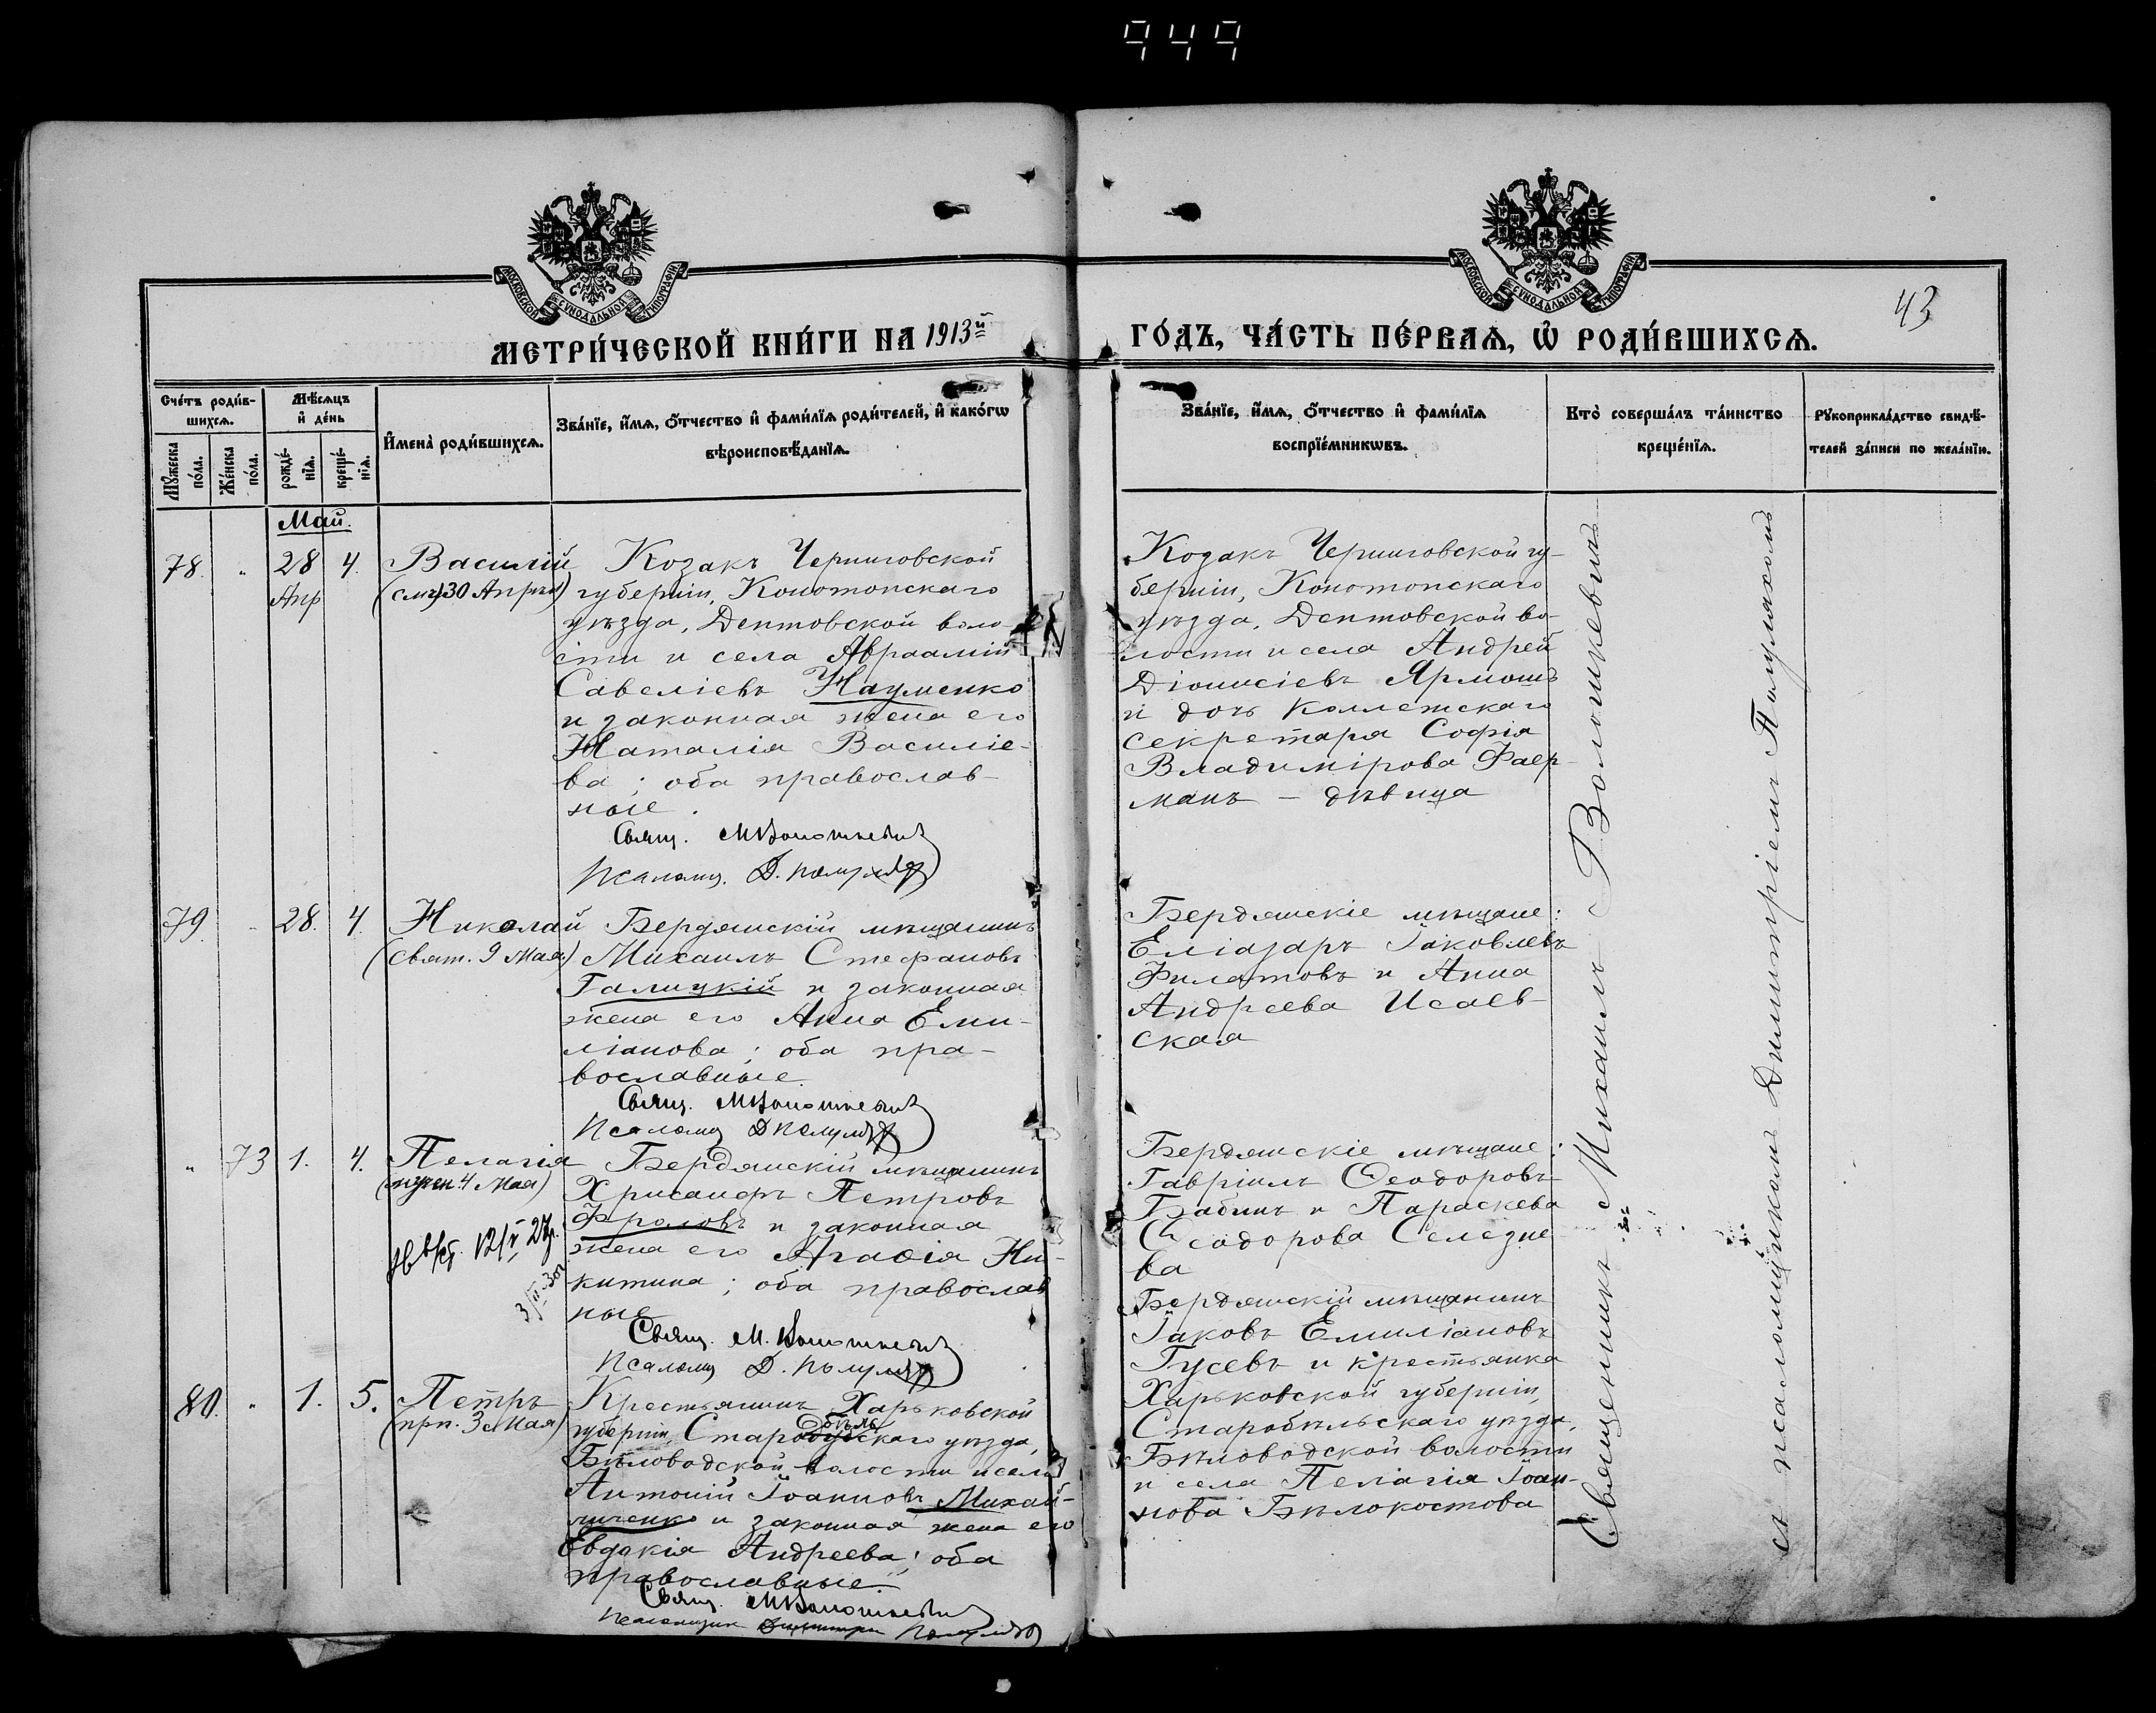 949
МОСКОВСКОЙ СѴНОДАЛЬНОЙ ТИПОГРАФІИ
МОСКОВСКОЙ СѴНОДАЛЬНОЙ ТИПОГРАФІИ
43
МЕТРИ́ЧЕСКОЙ КНИ́ГИ НА 1913й
ГО́ДЪ, ЧА́СТЬ ПЕ́РВАѦ, Ѡ РОДИ́ВШИХСѦ.
Сче́тъ роди́в-
шихсѧ.
Мꙋжеска
по́ла.
Же́нска
по́ла.
Мѣ́сѧцъ
и де́нь
рожде́-
нїѧ.
креще́-
нїѧ.
Имена̀ роди́вшихсѧ.
Зва́нїе, и́мѧ, о́тчество и фами́лїѧ роди́телей, и како́гѡ
вѣроисповѣ́данїѧ.
Зва́нїе, и́мѧ, о́тчество и фами́лїѧ
воспрїе́мникѡвъ.
Кто̀ соверша́лъ та́инство
креще́нїѧ.
Рꙋкоприкла́дство свидѣ́-
телей за́писи по жела́нїю.
Май.
78. " 28 4. Василій
Апр (смч) 30 Апрѣл)
Козакъ Черниговской
губерніи, Конотопскаго
уѣзда, Дептовской воло-
сти и села Авраамій
Савеліевъ Науменко
и законная жена его
Наталія Василіе-
ва; оба православ-
ные.
Свящ. М Волошкевичъ
Псаломщ. Д. Полулях
Козакъ Черниговской гу-
берніи, Конотопскаго
уѣзда, Дептовской во-
лости и села Андрей
Діонисіевъ Ярмошъ
и дочь коллежскаго
секретаря Софія
Владимірова Фаер-
манъ – дѣвица
79. " 28. 4. Николай
(свят. 9 Мая)
Бердянскій мѣщанинъ
Михаилъ Стефановъ
Галицкій и законная
жена его Анна Еми-
ліанова; оба пра-
вославные.
Свящ. М Волошкевичъ
Псаломщ Д Полулях
Бердянскіе мѣщане:
Еліазаръ Іаковлевъ
Филатовъ и Анна
Андреева Исаев-
ская
" 73 1. 4. Пелагія
(мучен. 4 Мая)
Бердянскій мѣщанинъ
Хрисанфъ Петровъ
Фроловъ и законная
жена его Агаѳія Ни-
китина; оба православ
ные
Свящ. М. Волошкевичъ
Псаломщ Д. Полулях
Бердянскіе мѣщане:
Гавріилъ Ѳеодоровъ
Бабинъ и Параскева
Ѳеодорова Селезне-
ва
80. " 1. 5. Петръ
(прп. 3 Мая)
Крестьянинъ Харьковской
бѣль
губерніи, Старобудскаго уѣзда,
Бѣловодской волости и села
Антоній Іоанновъ Михай-
личенко и законная жена его
Евдокія Андреева; оба
православные.
Свящ. М Волошкевичъ
Псаломщик Димитри Полулях
Бердянскій мѣщанинъ
Іаковъ Емиліановъ
Гусевъ и крестьянка
Харьковской губерніи,
Старобѣльскаго уѣзда,
Бѣловодской волости
и села Пелагія Іоан-
нова Бѣлокостова
Священникъ Михаилъ Волошкевичъ
съ псаломщикомъ Димитріемъ Полуляхомъ